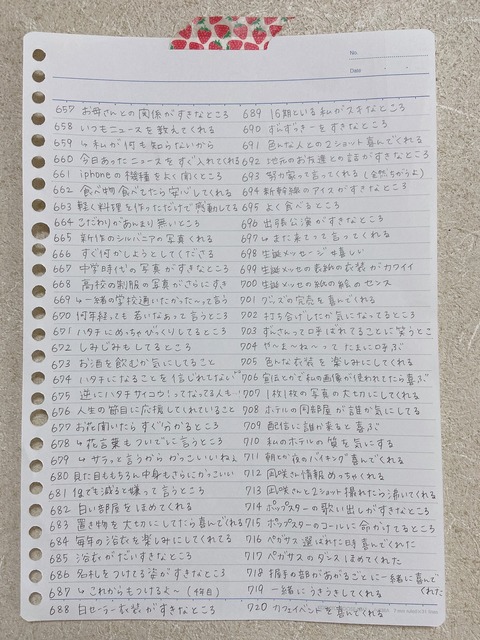 No.
Date
657 お母さんとの関係がすきなところ
658 いつもニュースを教えてくれる
659 ↳私が何も知らないから
660 今日あったニュースをすぐ入れてくれる
661 iphoneの機種をよく聞くところ
662 食べ物食べてたら安心してくれる
663 軽く料理を作っただけで感動してる
664 こだわりがあんまり無いところ
665 新作のシルバニアの写真くれる
666 すぐ何かしようとしてくださる
667 中学時代の写真がすきなところ
668 高校の制服の写真がさらにすき
669 ↳一緒の学校通いたかったーって言う
670 何年経っても若いなぁって言うところ
671 ハタチにめちゃびっくりしてるところ
672 しみじみもしてるところ
673 お酒を飲むか気にしてること
674 ハタチになることを信じれてない
675 逆にハタチサイコウ!ってなってる人も
676 人生の節目に応援してくれていること
677 お花届いたらすぐ分かるところ
678 ↳花言葉もついでに言うところ
679 ↳サラッと言うからかっこいいねぇ
680 見た目ももちろん中身もさらにかっこいい
681 1gでも減ると嫌って言うところ
682 白い部屋をほめてくれる
683 置き物を大切にしてたら喜んでくれる
684 毎年の浴衣を楽しみにしてくれる
685 浴衣がだいすきなところ
686 名札をつけてる姿がすきなところ
687 ↳これからもつけるよ〜(1年目)
688 白セーラー衣装がすきなところ
689 15期といる私がスキなところ
690 ずんずっきーをすきなところ
691 色んな人との2ショット喜んでくれる
692 地元のお友達との話がすきなところ
693 努力家って言ってくれる(全然ちがうよ)
694 新幹線のアイスがすきなところ
695 よく食べるところ
696 出張公演がすきなところ
697 ↳また来てって言ってくれる
698 生誕メッセージ嬉しい
699 生誕メッセの表紙の衣装がカワイイ
700 生誕メッセの紙の絵のセンス
701 グッズの完売を喜んでくれる
702 打ち合げしたか気になってるところ
703 ずんさんって呼ばれてることに笑うとこ
704 や〜ま〜ね〜ってたまに呼ぶ
705 色んな衣装を楽しみにしてくれる
706 宣伝とかで私の画像が使われてたら喜ぶ
707 1枚1枚の写真の大切にしてくれる
708 ホテルの同部屋が誰か気にしてる
709 配信に誰か来ると喜ぶ
710 私のホテルの質を気にする
711 朝とか夜のバイキング喜んでくれる
712 凪咲さん情報めっちゃくれる
713 凪咲さんと2ショット撮れたら沸いてくれる
714 ポップスターの歌い出しがすきなところ
715 ポップスターのコールに命かけてるところ
716 ペガサス選ばれた日喜んでくれた
717 ペガサスのダンスほめてくれた
718 握手の部があがるごとに一緒に喜んでくれた
719 一緒にうきうきしてくれる
720 カフェイベントを喜んでくれる